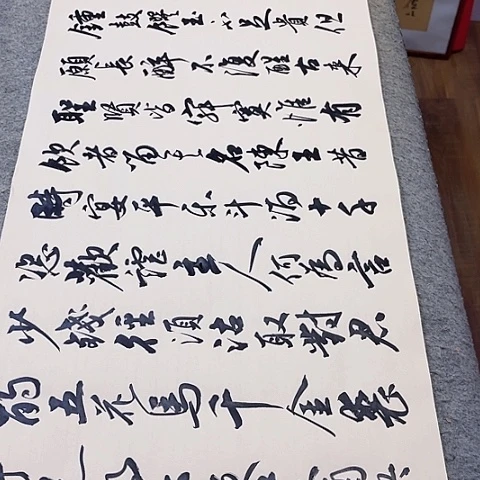 鍾鼓饌玉不足貴但
願長醉不復醒古來
聖賢皆寂寞惟有
飲者留其名陳王昔
時宴平樂斗酒十千
恣歡謔主人何為言
少錢徑須沽取對君
酌五花馬千金裘